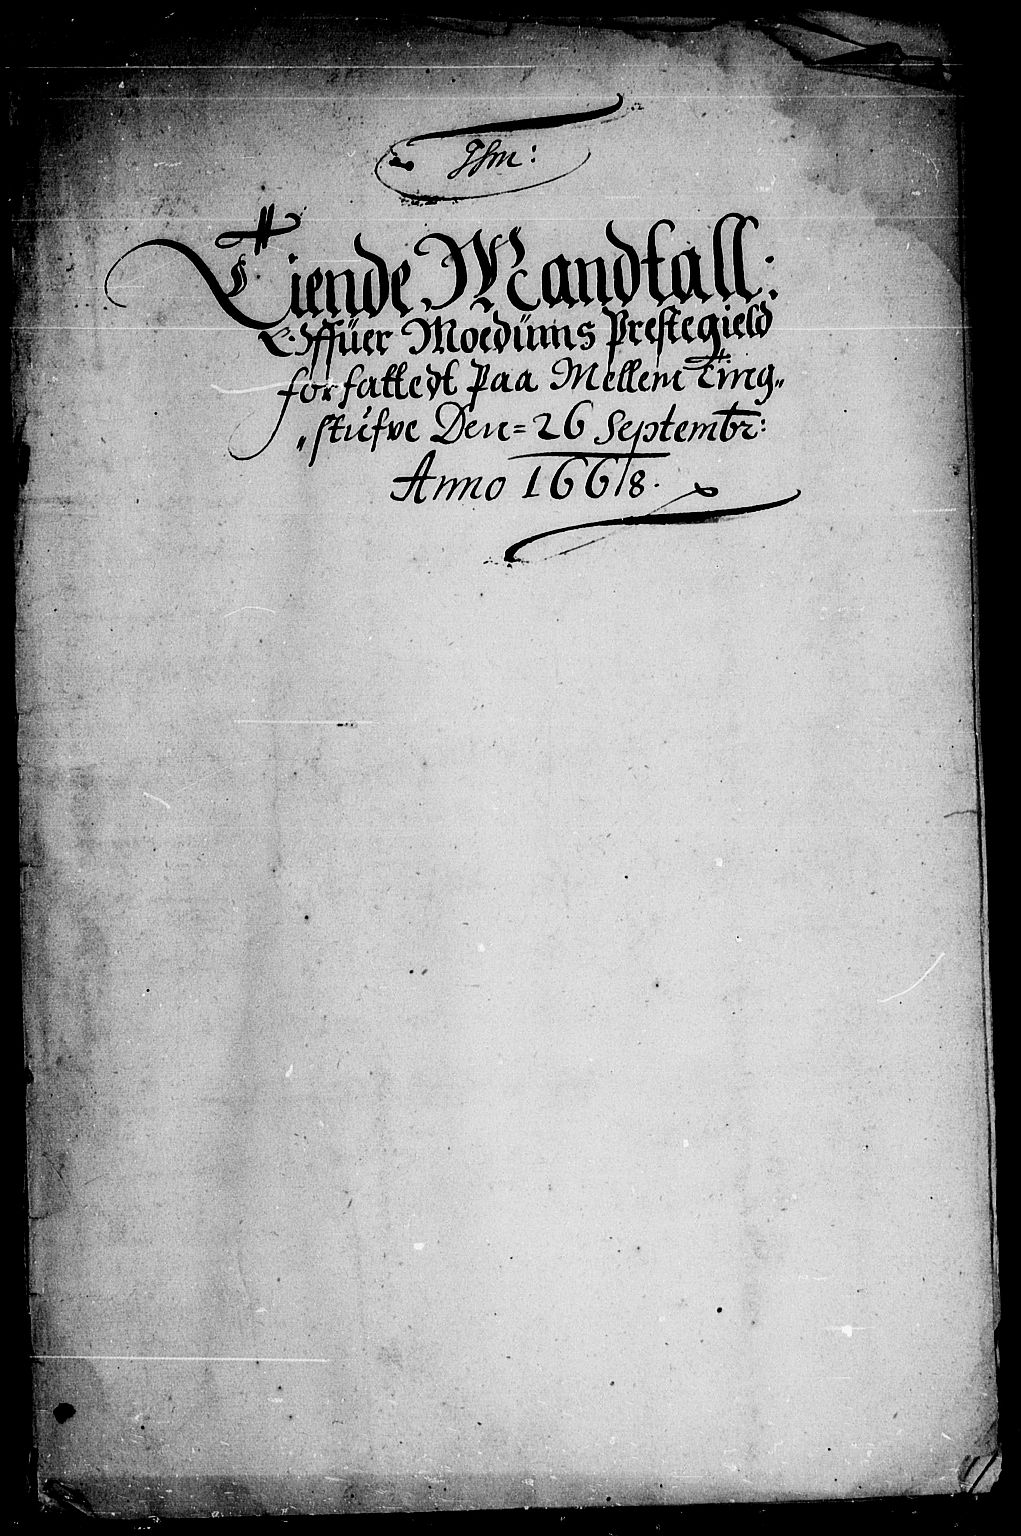 Tiende Mandtall:
Offüer Moedüms Prestegield
forfattedt paa Mellem Ting„
„stúfve Den= 26 Septembr:
Anno 1668.